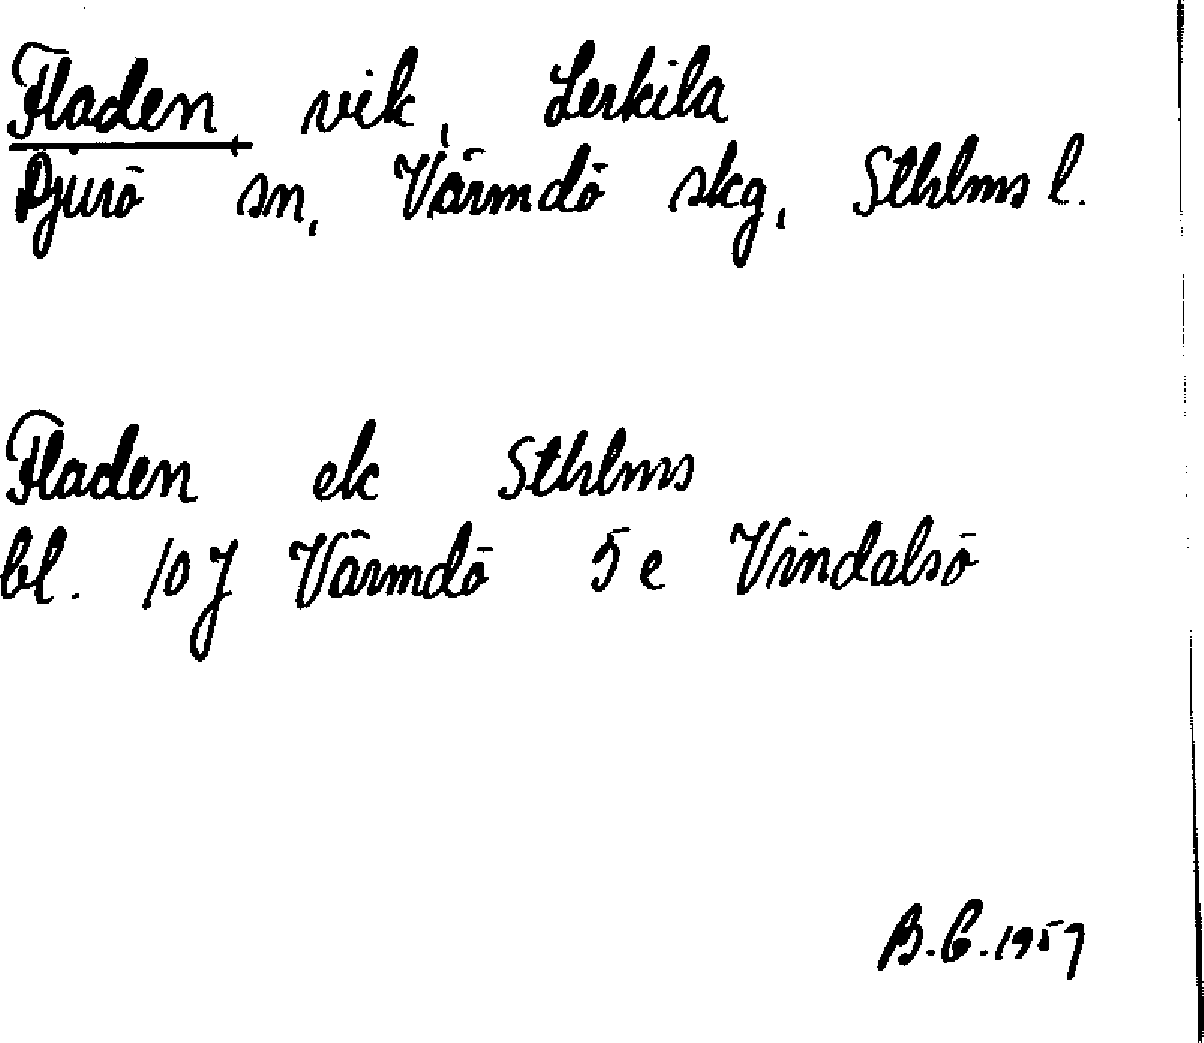 Fladen, vik, Lerkila
Djurö sn, Värmdö skg, Sthlms l.
Fladen ek Sthlms
bl. 10 J Värmdö 5 e Vindalsö
B.G. 1957